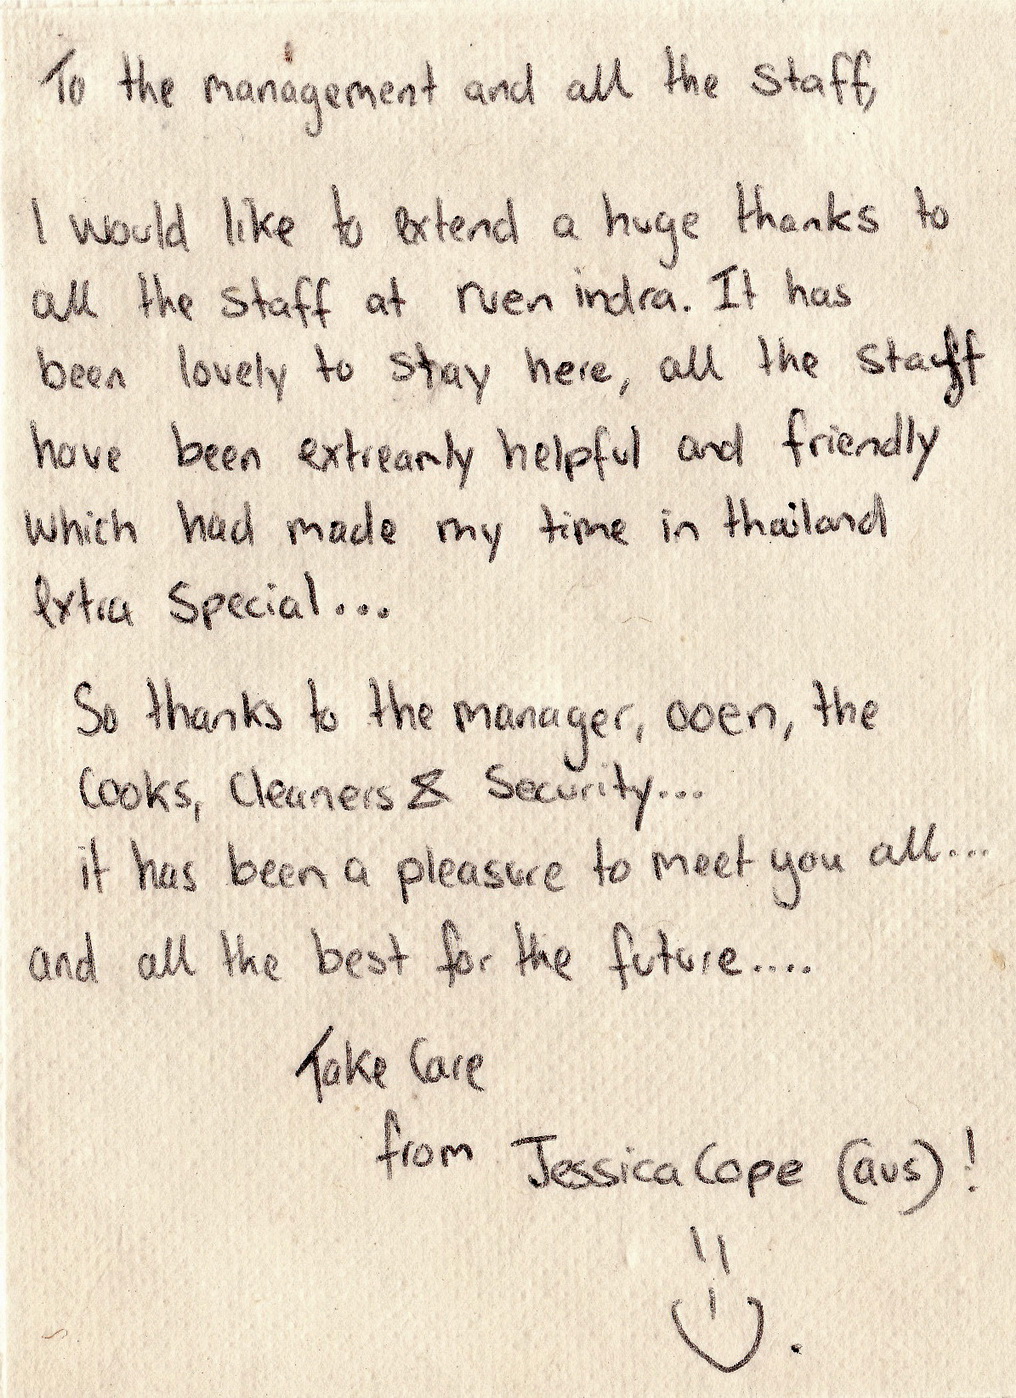 To the management and all the staff,
I would like to extend a huge thanks to
all the staff at ruen indra. It has
been lovely to stay here, all the staff
have been extreamly helpful and friendly
which had made my time in thailand
extra special...
So thanks to the manager, ooen, the
cooks, cleaners & security...
it has been a pleasure to meet you all...
and all the best for the future....
Take Care
from Jessica Cope (aus)!